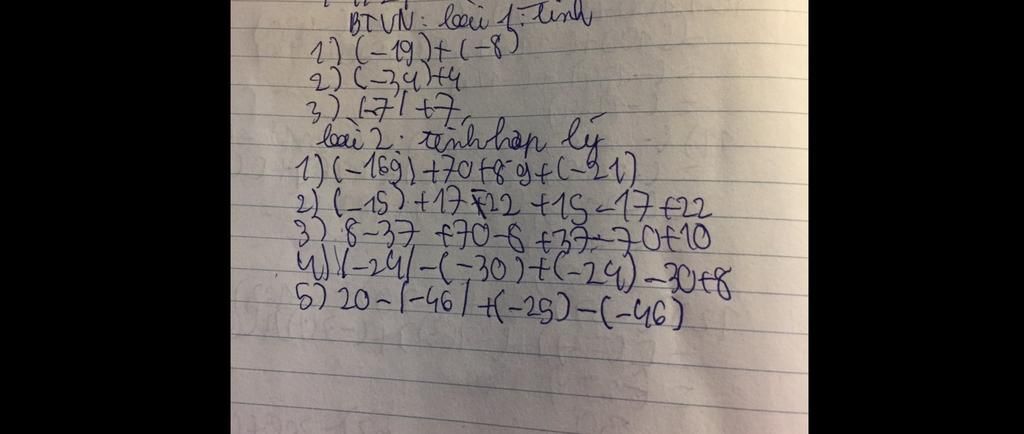 BTVN: bài 1: tính
1) (-19)+(-8)
2) (-34)+4
3) |-7| +7
bài 2: tính hợp lý
1) (-169)+70+89+(-21)
2) (-15)+17-22 +15-17+22
3) 8-37 +70-8+37-70+10
4) |-24|-(-30)+(-24)-30+8
5) 20-|-46|+(-25)-(-46)